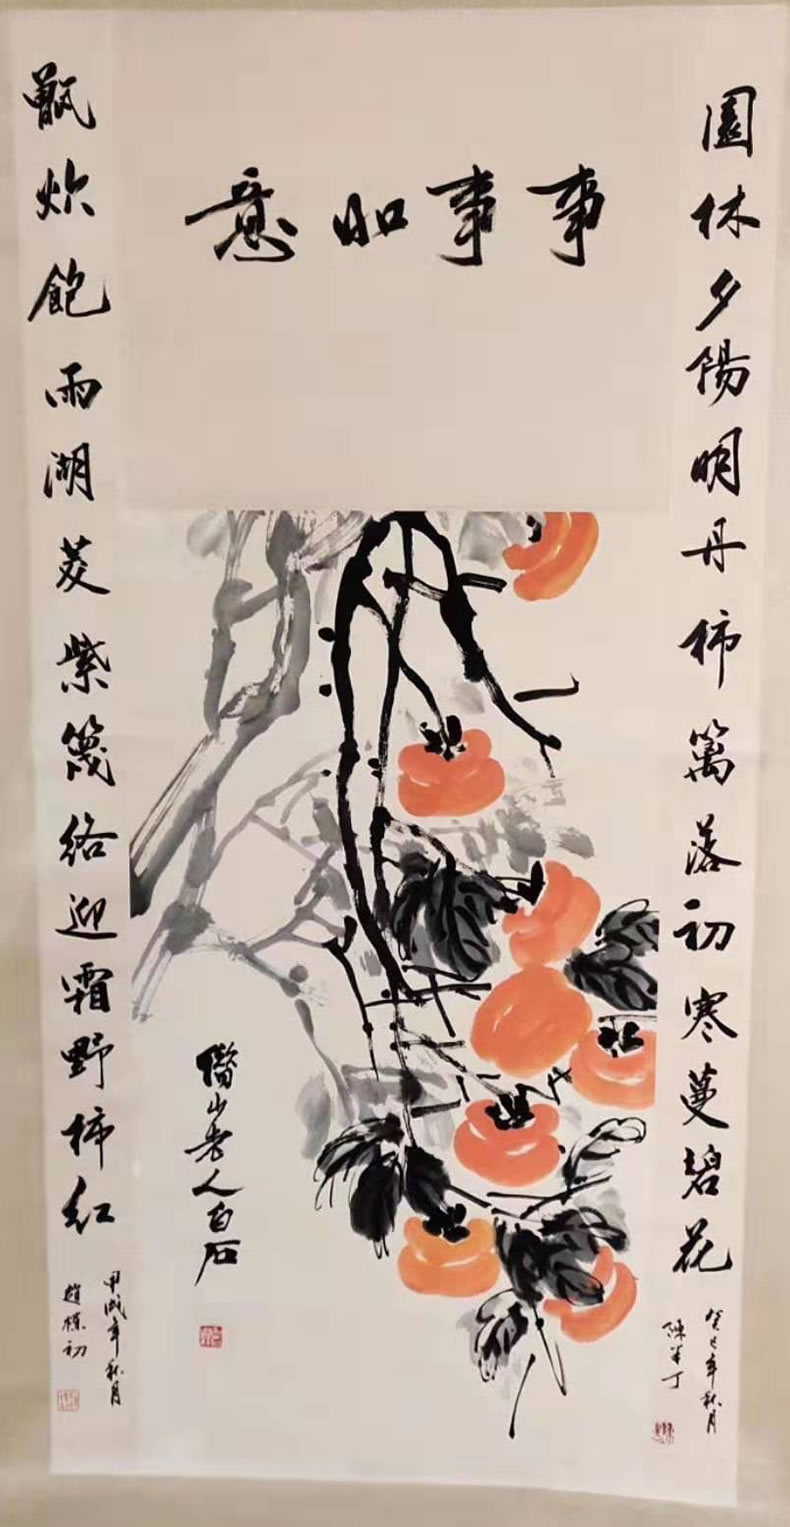 事事如意
園林夕陽明丹柿篱落初寒蔓碧花
癸巳年秋月
陳半丁
甑炊飽雨湖菱紫篾絡迎霜野柿红
甲戌年秋月
趙樸初
借山老人白石